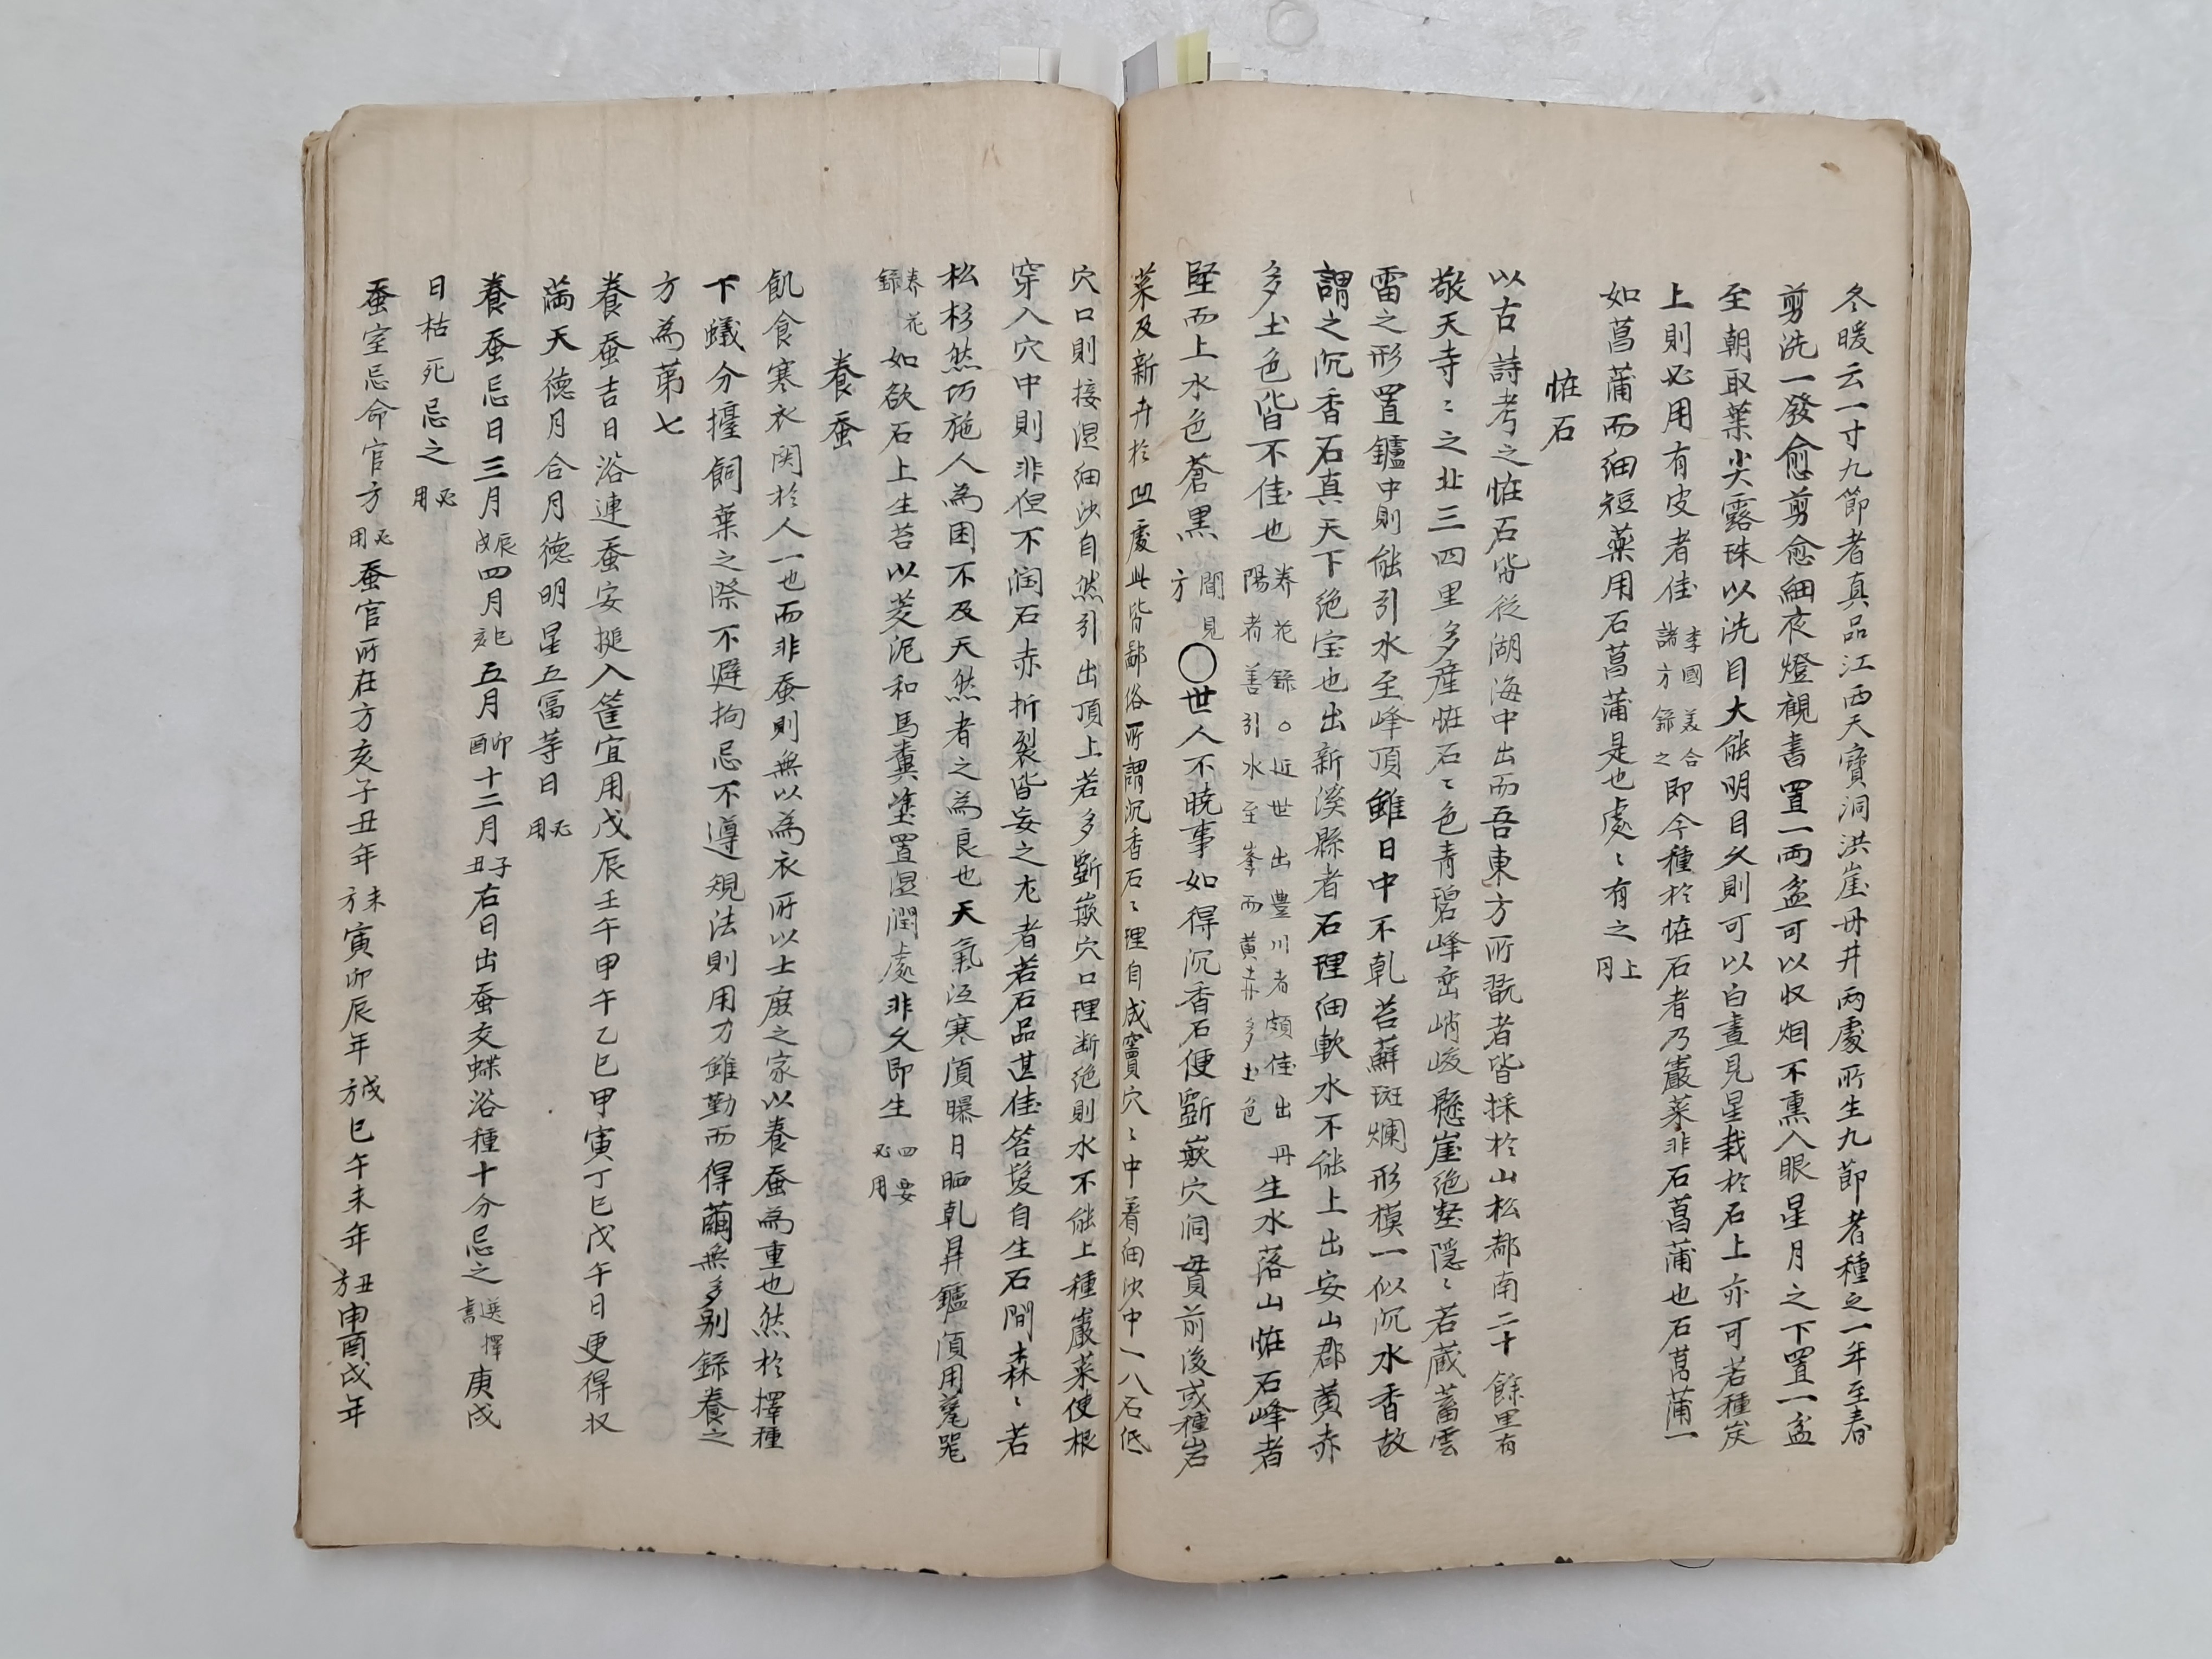 冬暖云一寸九節者真品江西天寶洞洪崖丹井两處所生九節者種之一年至春
剪洗一發愈剪愈細夜燈觀書置一両盆可以收烟不熏入眼星月之下置一盆
至朝取葉尖露珠以洗目大能明目久則可以白晝見星栽於石上亦可若種炭
上則必用有皮者佳李國美合諸方錄之即今種於恠石者乃巖菜非石菖蒲也石菖蒲一
如菖蒲而細短藥用石菖蒲是也處〻有之上仝
恠石
以古詩考之恠石皆從湖海中出而吾東方所翫者皆採於山松都南二十餘里有
敬天寺〻之北三四里多産恠石〻色青碧峰巒峭峻懸崖绝壑隱〻若蔵蓄雲
雷之形置鑪中則能引水至峰頂雖日中不乹苔蘚斑斕形模一似沉水香故
謂之沉香石真天下绝宝也出新溪縣者石理细軟水不能上出安山郡黄赤
多土色皆不佳也养花録○近世出豊川者頗佳出丹陽者善引水至峯而黄赤多土色生水落山恠石峰者
堅而上水色蒼黒聞見方〇世人不暁事如得沉香石便斲嵌穴洞貫前後或種岩
菜及新卉於凹處此皆鄙俗所謂沉香石〻理自成竇穴〻中着细沙中一八石低
穴口則接湿细沙自然引出頂上若多斲嵌穴口理断绝則水不能上種巖菜使根
穿入穴中則非但不润石赤折裂皆妄之尤者若石品甚佳苔髮自生石間森〻若
松杉然巧施人為困不及天然者之為良也天氣沍寒湏曝日晒乹昇鑪湏用毫氅
养花錄如欲石上生苔以茭泥和馬糞塗置湿潤處非久即生四要必用
養蚕
飢食寒衣関於人一也而非蚕則無以為衣所以士庶之家以養蚕為重也然於擇種
下蟻分擡飼葉之際不避拘忌不遵規法則用力雖勤而得繭無多别錄養之
方為第七
養蚕吉日浴連蚕安搥入筐宜用戊辰壬午甲午乙巳甲寅丁巳戊午日更得收
満天德月合月德明星五富等日必用
養蚕忌日三月辰戌四月巳亥五月卯酉十二月子丑右日出蚕交蝶浴種十分忌之選擇書庚戌
日枯死忌之必用
蚕室忌命官方必用蚕官所在方亥子丑年未方寅卯辰年戌方巳午未年丑方申酉戌年